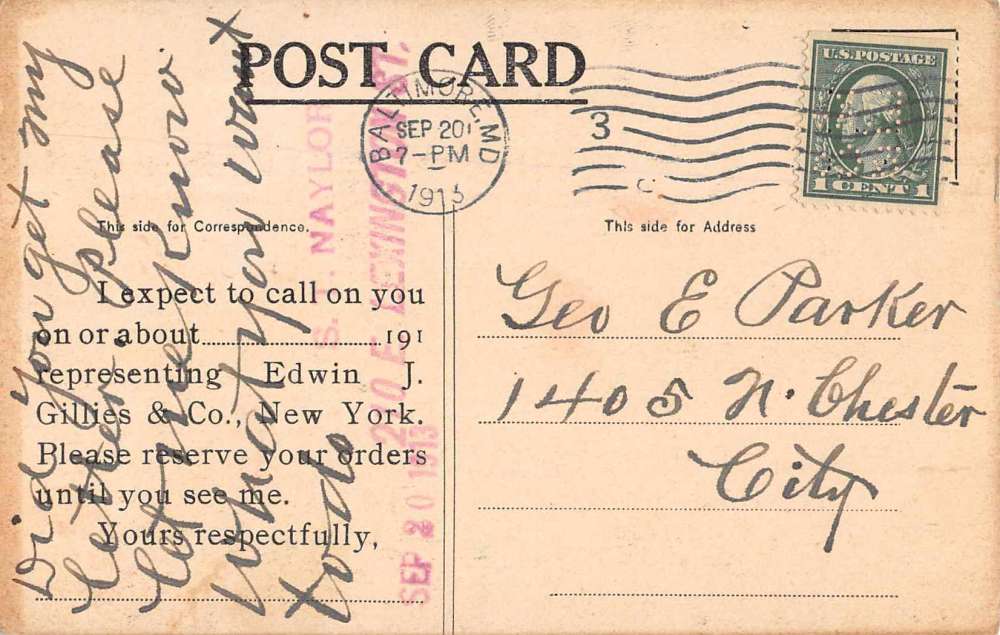 POST CARD
U.S. POSTAGE
1 CENT 1
BALTIMORE, MD
SEP 20
7-PM
1913
3
This side for Correspondence.
This side for Address
I expect to call on you
on or about 191
representing Edwin J.
Gillies & Co., New York.
Please reserve your orders
until you see me.
Yours respectfully,
Did you get my
letter. Please
let me know
what you want
to do
NAYLOR
E. LEXINGTON ST.
SEP 20 1913
Geo E Parker
1405 N. Chester
City